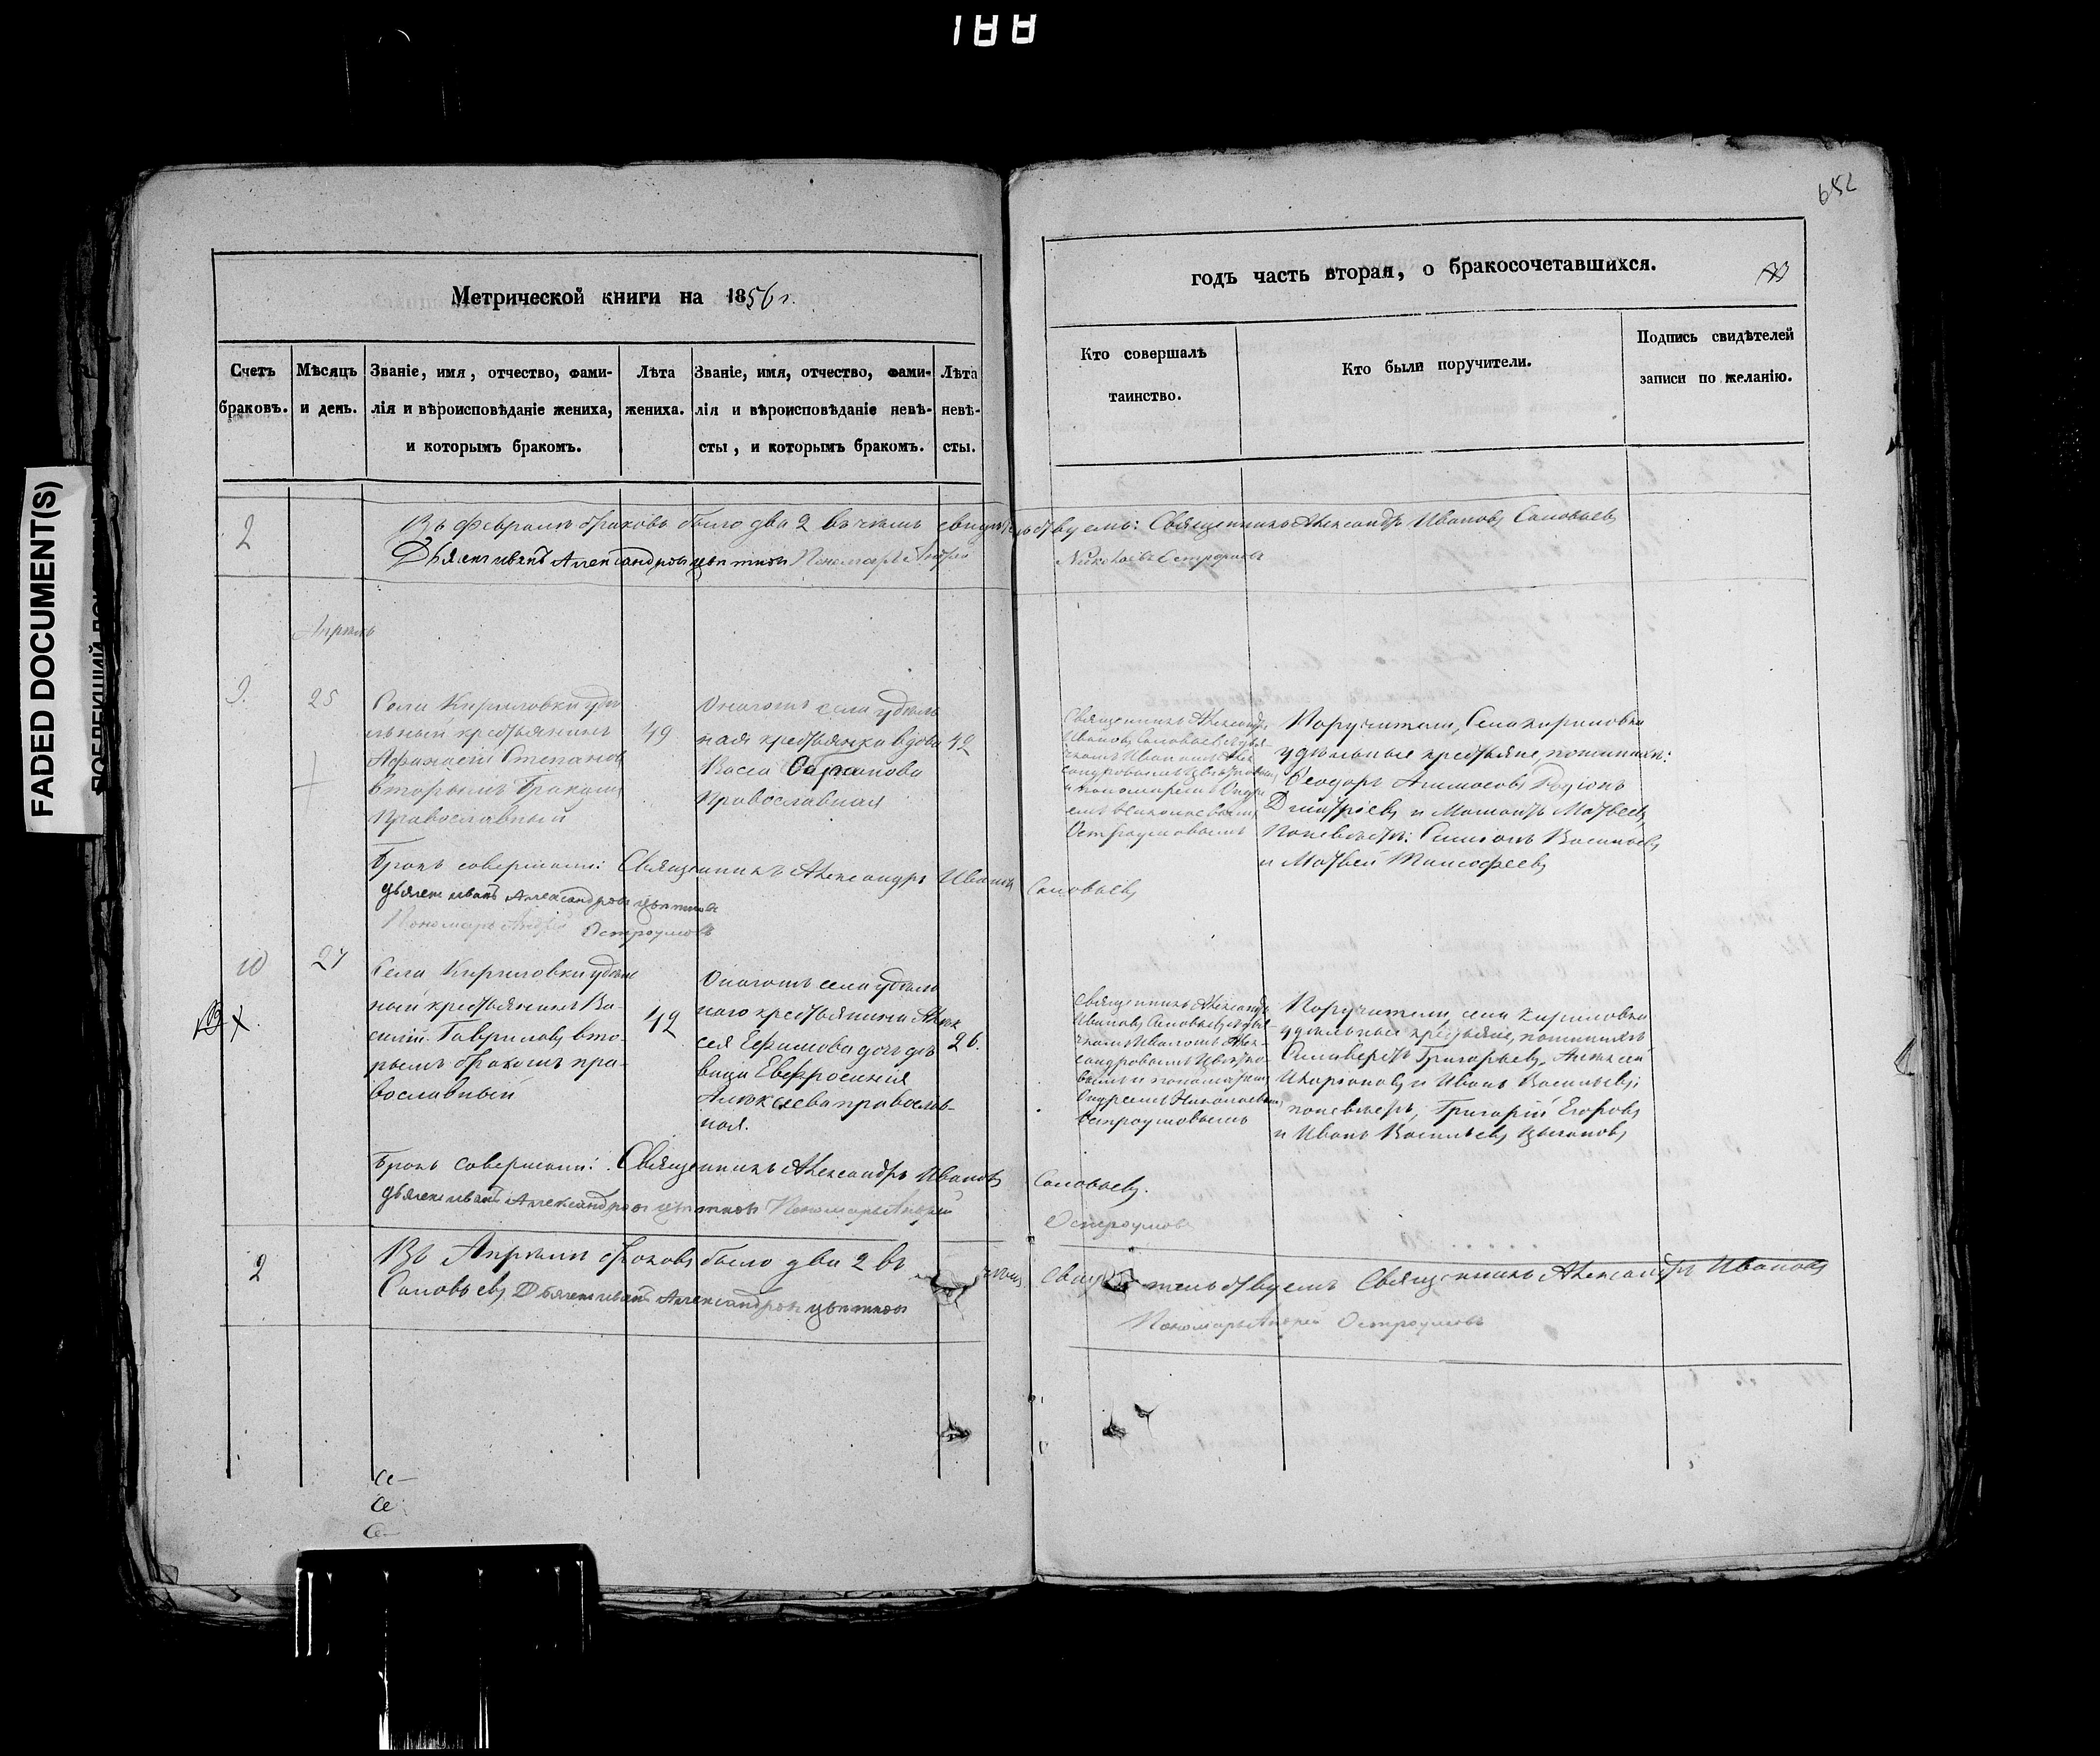 188
FADED DOCUMENT(S)
652
Метрической книги на 1856 г.
Счетъ браковъ.
Мѣсяцъ и день.
Званіе, имя, отчество, фами-
лія и вѣроисповѣданіе жениха,
и которымъ бракомъ.
Лѣта жениха.
Званіе, имя, отчество, фами-
лія и вѣроисповѣданіе невѣ-
сты, и которымъ бракомъ.
Лѣта невѣ-
сты.
годъ часть вторая, о бракосочетавшихся.
Кто совершалъ
таинство.
Кто были поручители.
Подпись свидѣтелей
записи по желанію.
2
Въ Февралѣ браковъ было два 2 въ чемъ свидѣтельствуемъ: Священникъ Александръ Ивановъ Соловьевъ
Дьяконъ Иванъ Александровъ Цвѣтковъ Пономарь Андрей
Николаевъ Остроумовъ
Апрѣль
9.
25
Села Кириловки удѣ-
льный крестьянинъ
Афанасій Степановъ
вторымъ бракомъ
Православный
49
Оногожъ села удѣль
ная крестьянка вдова
Васса
Православная
42
Священникъ Александръ
Ивановъ Соловьевъ съ дья-
кономъ Иваномъ Алек
сандровымъ Цвѣтковымъ
и пономаремъ Андре
емъ Николаевымъ
Остроумовымъ
Поручители, Села Кириловки
удѣльные крестьяне, по женихѣ:
Ѳеодоръ Родіонъ
Дмитріевъ и Матвеевъ,
по невѣстѣ: Симеонъ Васильевъ
и Матвей
Бракъ совершали: Священникъ Александръ Ивановъ Соловьевъ
дьяконъ Иванъ Александровъ Цвѣтковъ
Пономарь Андрей Остроумовъ
10
27
Села Кириловки удѣль
ный крестьянинъ Ва-
силій Гавриловъ вто-
рымъ бракомъ пра-
вославный
42
Оногожъ села удѣль
наго крестьянина Алек
сея Ефимова дочь дѣ
вица Евфросинія
Алексеева православ-
ная.
26.
Священникъ Александръ
Ивановъ Соловьевъ съ дья-
кономъ Иваномъ Алек-
сандровымъ Цвѣтко-
вымъ и пономаремъ
Андреемъ Николаевымъ
Остроумовымъ
Поручители, села Кириловки
удѣльные крестьяне, по женихѣ
Селиверстъ Григорьевъ, Алексей
и Иванъ Васильевъ;
по невѣстѣ, Григорій Егоровъ
и Иванъ Васильевъ Цыгановъ
Бракъ совершали: Священникъ Александръ Ивановъ Соловьевъ.
дьяконъ Иванъ Александровъ Цвѣтковъ Пономарь Андрей
Остроумовъ
2
Въ Апрѣлѣ браковъ было два 2 въ чемъ свидѣтельствуемъ Священникъ Александръ Ивановъ
Соловьевъ Дьяконъ Иванъ Александровъ Цвѣтковъ
Пономарь Андрей Остроумовъ